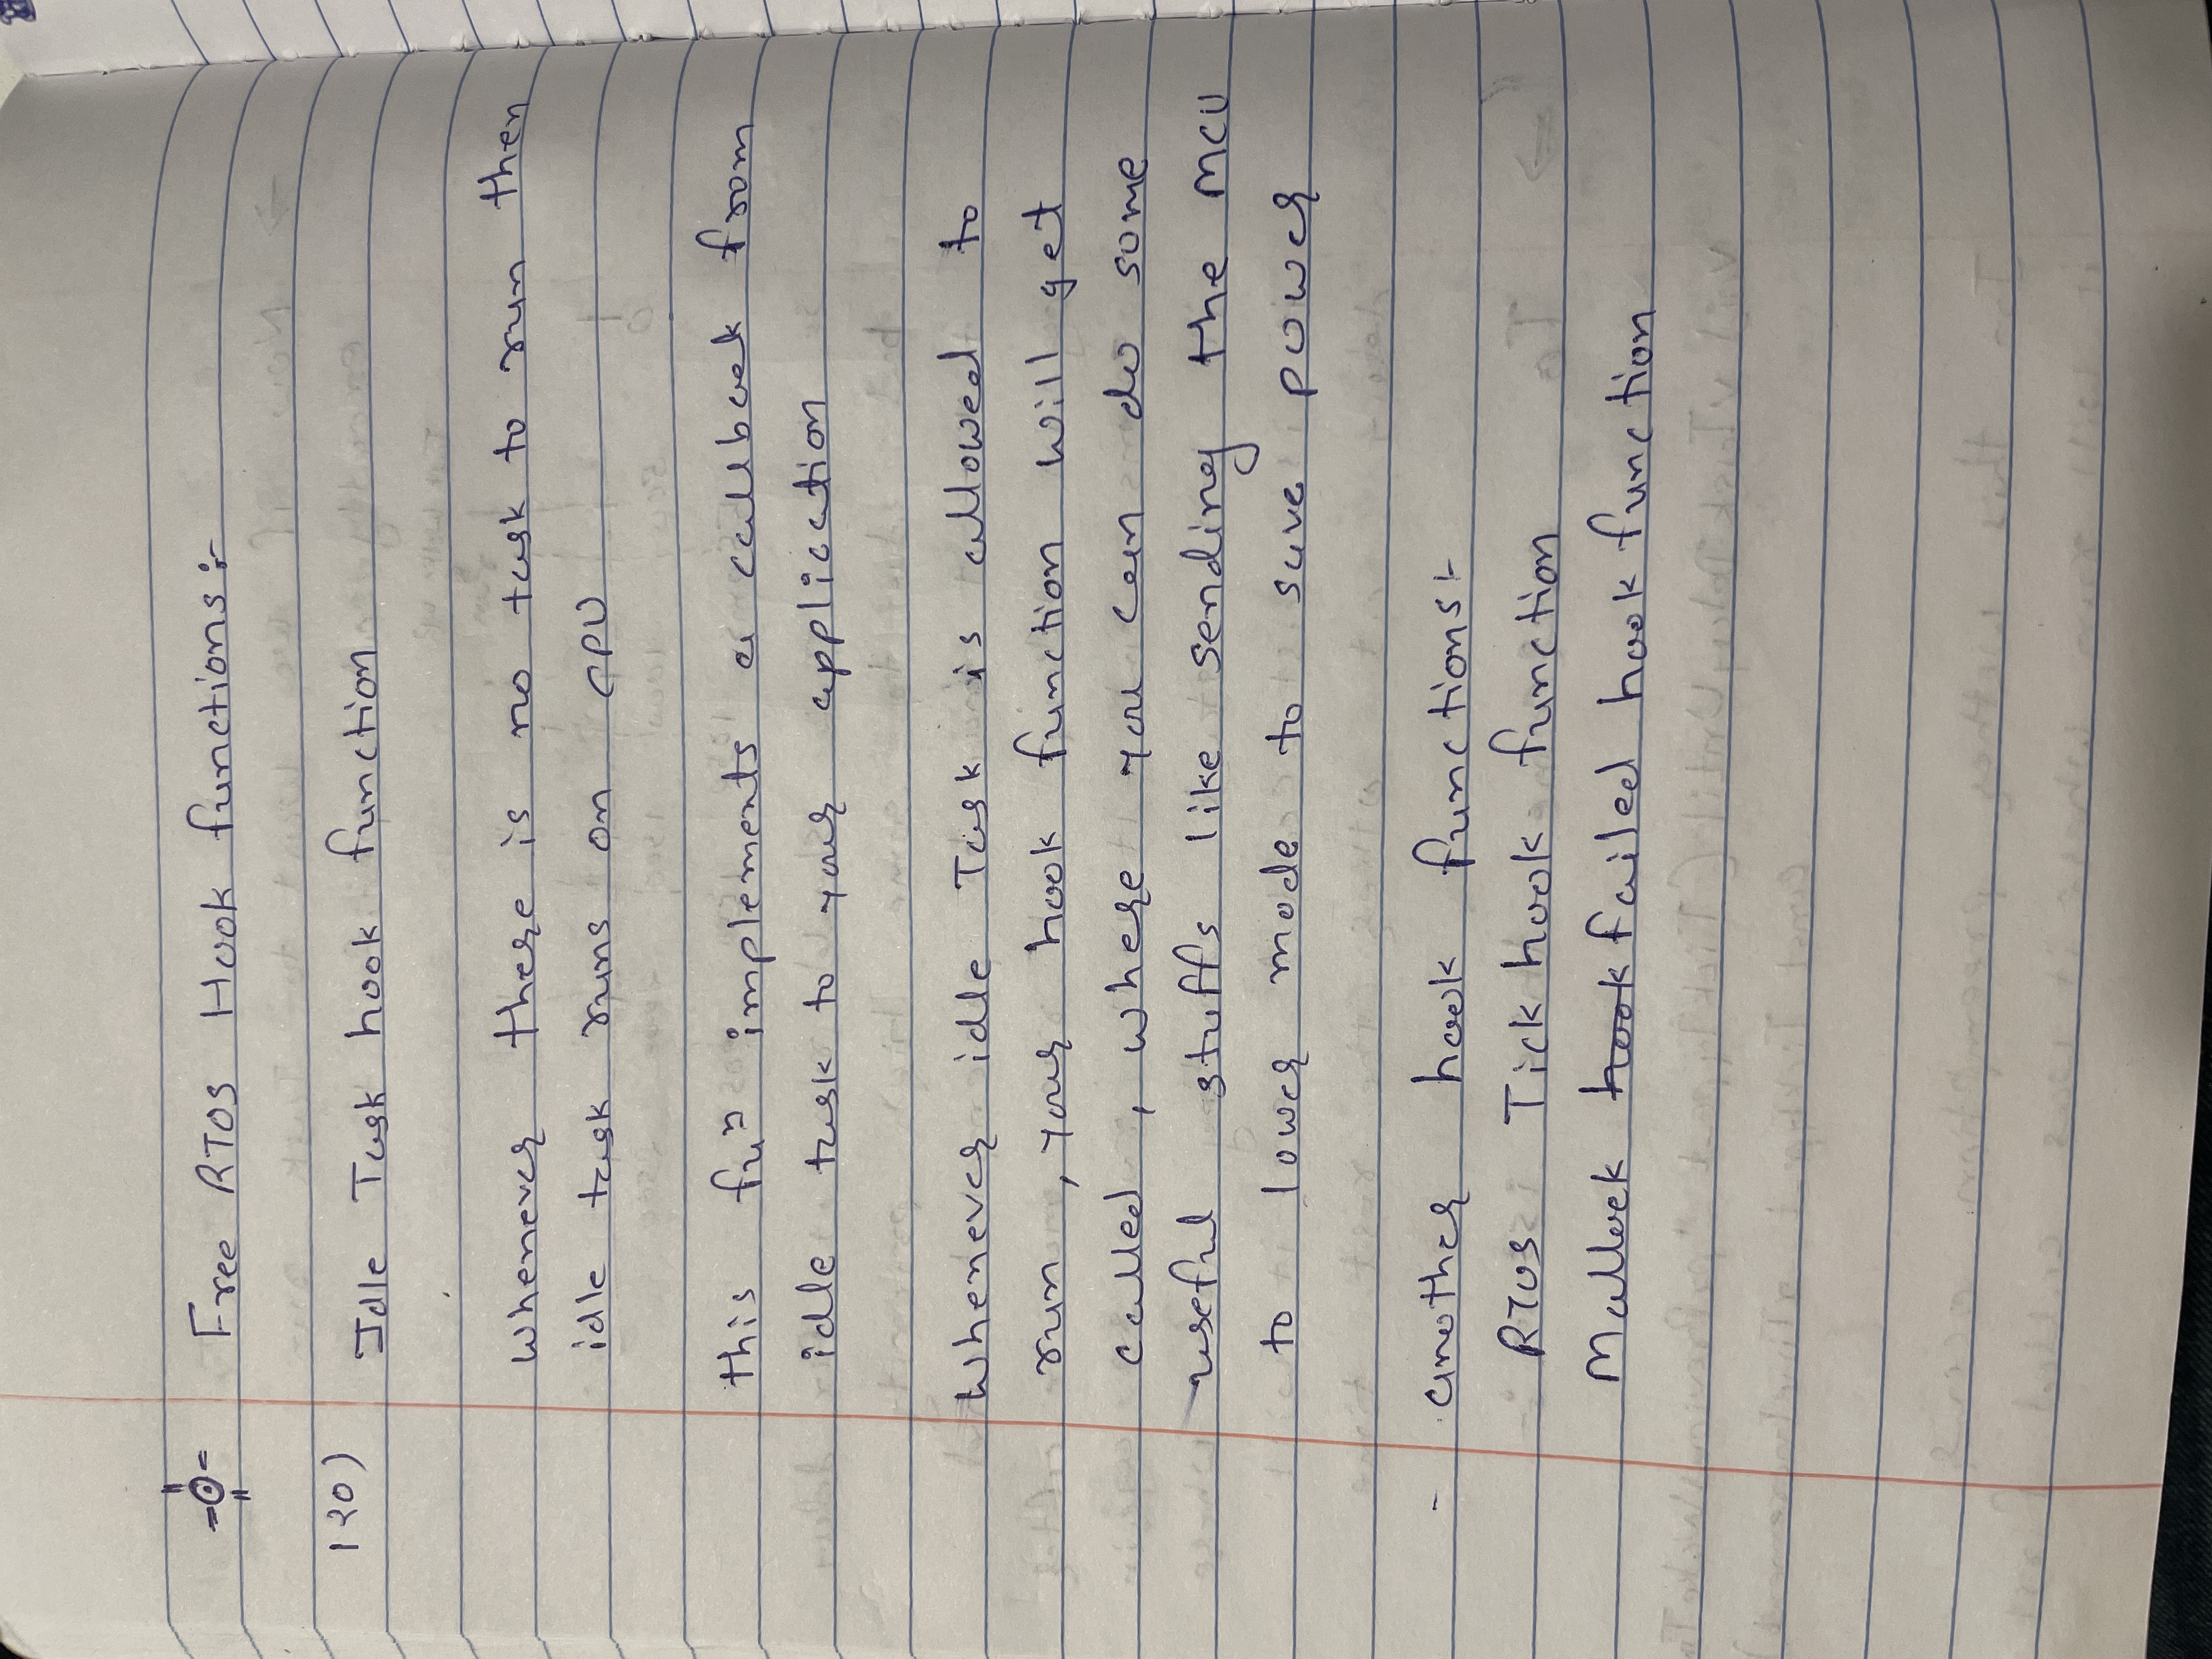 Free RTOS Hook functions :-
120) Idle Task hook function
whenever there is no task to run then
idle task runs on CPU
this fuⁿ implements a callback from
idle task to your application
Whenever idle Task is allowed to
run , your hook function will get
called , where you can do some
useful stuffs like sending the MCU
to lower mode to save power
- another hook functions :-
RTOS Tick hook function
Mallock hook failed hook function